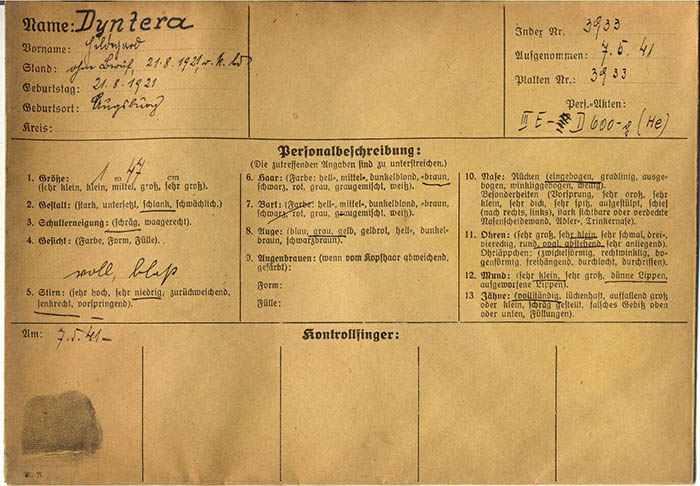 Name: Dyntera
Vorname: Hildegard
Stand: ohne Beruf, 21.8.1921
Geburtstag: 21.8.1921
Geburtsort: Augsburg
Kreis:
Index Nr. 3933
Aufgenommen: 7.5.41
Platten Nr.: 3933
Pers.-Akten:
III E- D 600-g (He)
Personalbeschreibung:
(Die zutreffenden Angaben sind zu unterstreichen.)
1. Größe: 1 m 47 cm
(sehr klein, klein, mittel, groß, sehr groß).
2. Gestalt: (stark, untersetzt, schlank, schwächlich.)
3. Schulterneigung: (schräg, waagerecht.)
4. Gesicht: (Farbe, Form, Fülle).
voll, blaß
5. Stirn: (sehr hoch, sehr niedrig, zurückweichend,
senkrecht, vorspringend).
6. Haar: (Farbe: hell-, mittel-, dunkelblond, -braun,
schwarz, rot, grau, graugemischt, weiß).
7. Bart: (Farbe: hell-, mittel-, dunkelblond, -braun,
schwarz, rot, grau, graugemischt, weiß).
8. Auge: (blau, grau, gelb, gelbrot, hell-, dunkel-
braun, schwarzbraun).
9. Augenbrauen: (wenn vom Kopfhaar abweichend,
gefärbt):
Form:
Fülle:
10. Nase: Rücken (eingebogen, gradlinig, ausge-
bogen, winkliggebogen, wellig).
Besonderheiten (Vorsprung, sehr groß, sehr
klein, sehr dick, sehr spitz, aufgestülpt, schief
(nach rechts, links), stark sichtbare oder verdeckte
Nasenscheidewand, Adler-, Trinkernase).
11. Ohren: (sehr groß, sehr klein, sehr schmal, drei-,
viereckig, rund, oval, abstehend, sehr anliegend).
Ohrläppchen: (zwickelförmig, rechtwinklig, bo-
genförmig, freihängend, durchlocht, durchrissen).
12. Mund: (sehr klein, sehr groß, dünne Lippen,
aufgeworfene Lippen).
13. Zähne: (vollständig, lückenhaft, auffallend groß
oder klein, schräg gestellt, falsches Gebiß oben
oder unten, Füllungen).
Am: 7.5.41-
Kontrollfinger: